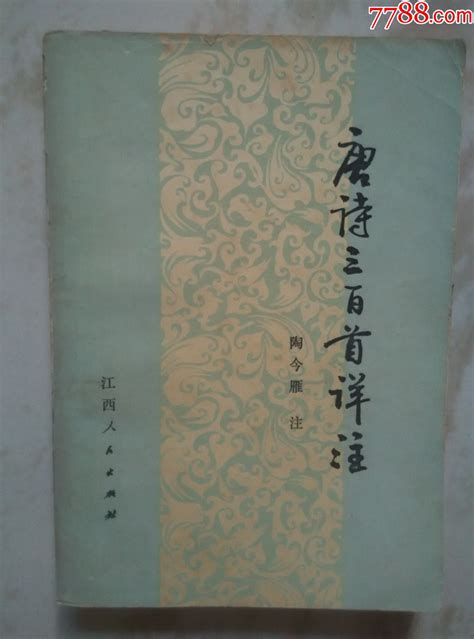 7788.com
唐诗三百首详注
陶今雁 注
江西人民出版社